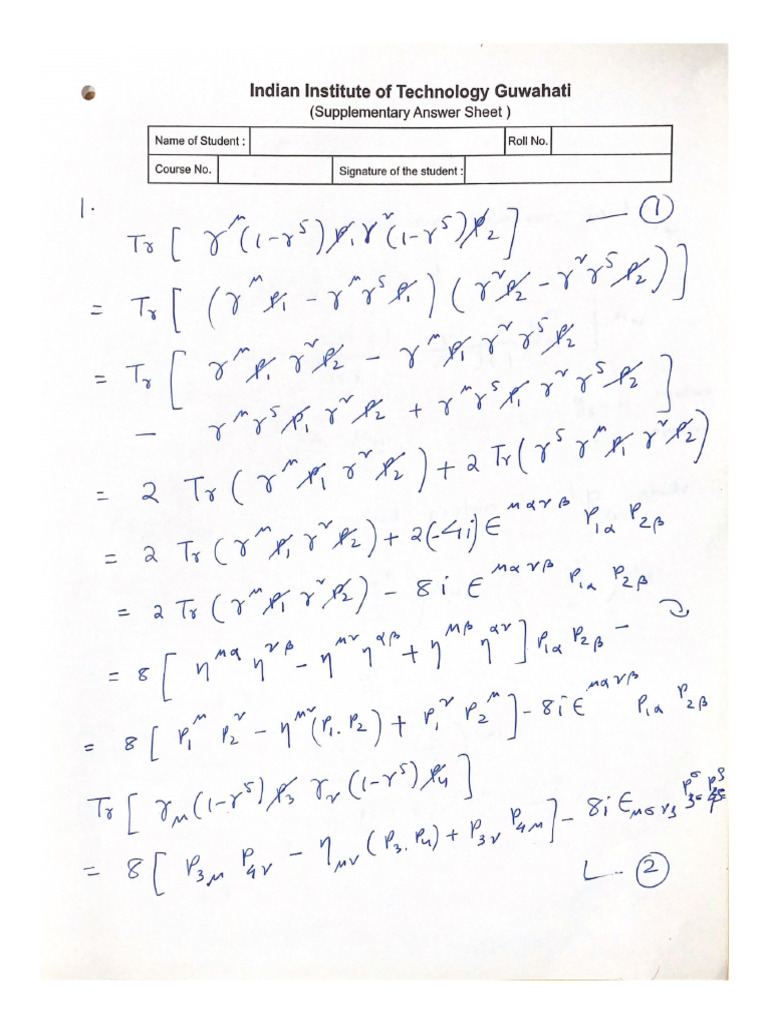 Indian Institute of Technology Guwahati
(Supplementary Answer Sheet )
Name of Student : Roll No.
Course No. Signature of the student :
1. Tr [ γ^μ (1-γ^5) p̸₁ γ^ν (1-γ^5) p̸₂ ] — ①
= Tr [ (γ^μ p̸₁ - γ^μ γ^5 p̸₁) (γ^ν p̸₂ - γ^ν γ^5 p̸₂) ]
= Tr [ γ^μ p̸₁ γ^ν p̸₂ - γ^μ p̸₁ γ^ν γ^5 p̸₂
- γ^μ γ^5 p̸₁ γ^ν p̸₂ + γ^μ γ^5 p̸₁ γ^ν γ^5 p̸₂ ]
= 2 Tr ( γ^μ p̸₁ γ^ν p̸₂ ) + 2 Tr ( γ^5 γ^μ p̸₁ γ^ν p̸₂ )
= 2 Tr ( γ^μ p̸₁ γ^ν p̸₂ ) + 2(-4i) ϵ^{μανβ} p_{1α} p_{2β}
= 2 Tr ( γ^μ p̸₁ γ^ν p̸₂ ) - 8i ϵ^{μανβ} p_{1α} p_{2β}
= 8 [ η^{μα} η^{νβ} - η^{μν} η^{αβ} + η^{μβ} η^{αν} ] p_{1α} p_{2β} -
= 8 [ p₁^μ p₂^ν - η^{μν} (p₁. p₂) + p₁^ν p₂^μ ] - 8i ϵ^{μανβ} p_{1α} p_{2β}
Tr [ γ_μ (1-γ^5) p̸₃ γ_ν (1-γ^5) p̸₄ ]
= 8 [ p_{3μ} p_{4ν} - η_{μν} (p₃. p₄) + p_{3ν} p_{4μ} ] - 8i ϵ
②